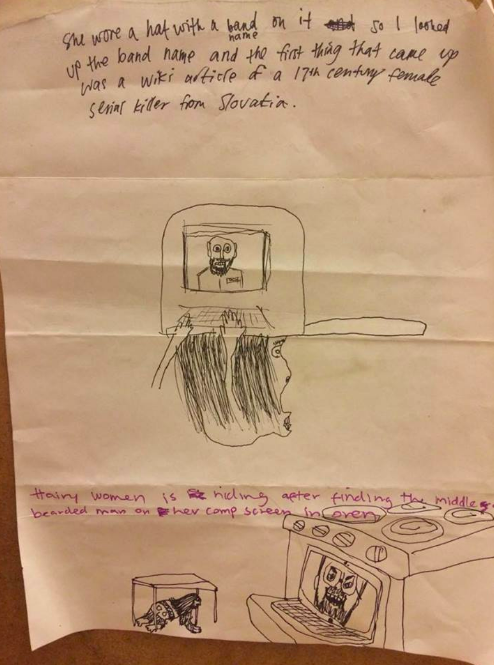 She wore a hat with a band name on it so I looked
up the band name and the first thing that came up
was a wiki article of a 17th century female
serial killer from Slovatia.
Hairy women is hiding after finding the middle
bearded man on her comp screen in oven